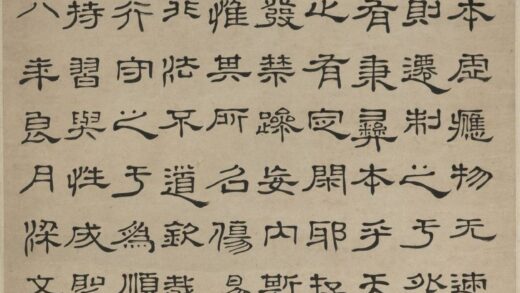 本虛應物无迹
則遷制之于外
有秉彝本乎天
止有定閑邪存
發禁躁妄內斯
惟其所召傷易
非法不道欽哉
行守之于為順
持習與性成聖
八年良月文